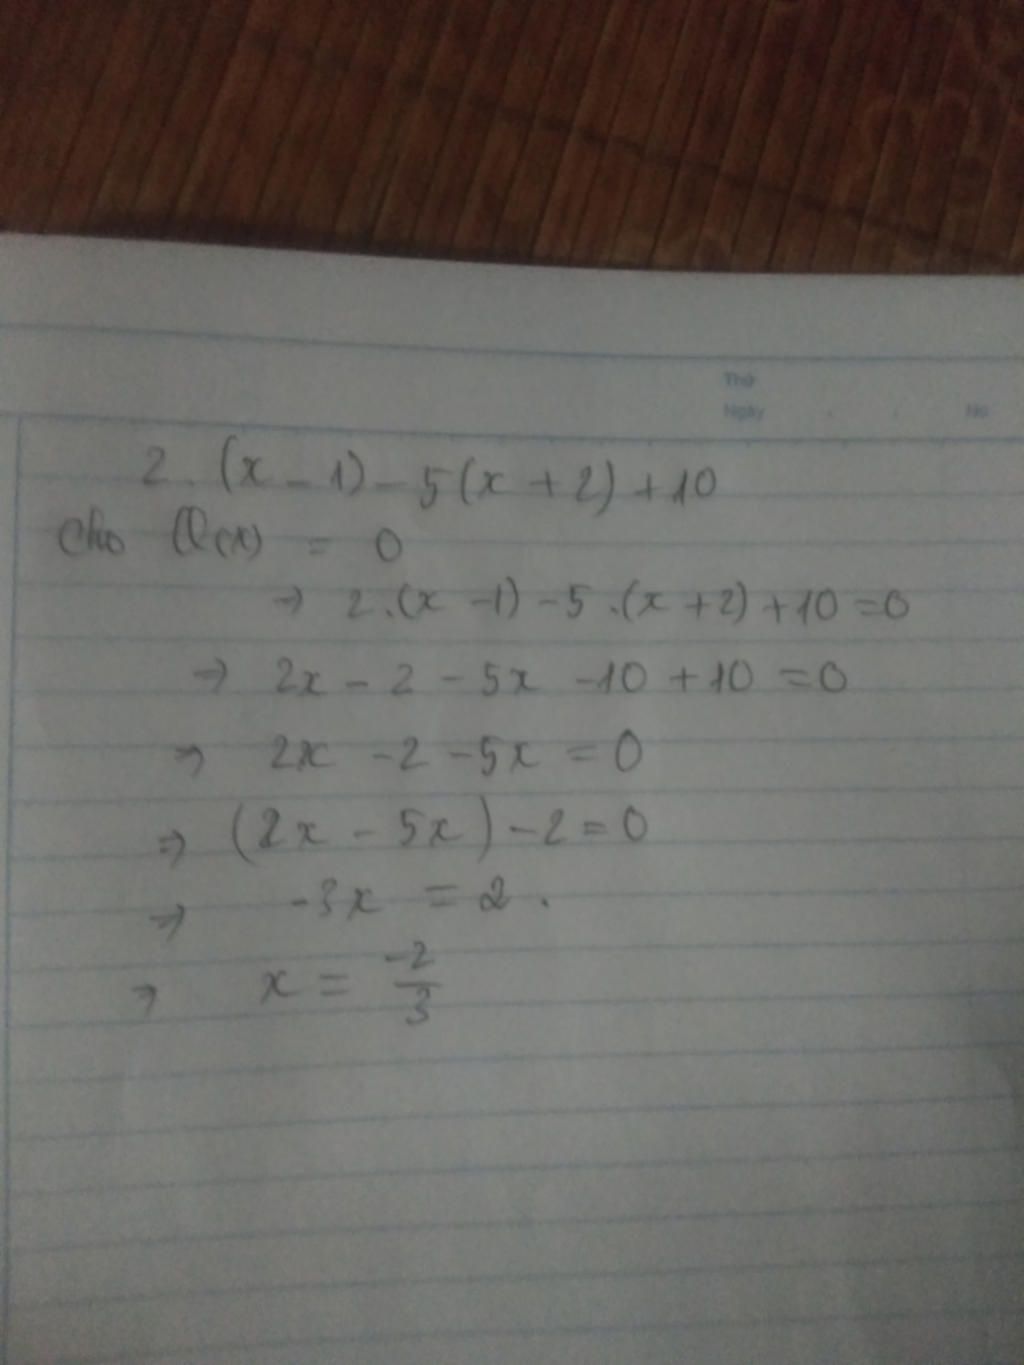 Thứ
Ngày . . No
2. (x - 1) - 5(x + 2) + 10
Cho Q(x) = 0
→ 2.(x - 1) - 5.(x + 2) + 10 = 0
→ 2x - 2 - 5x - 10 + 10 = 0
→ 2x - 2 - 5x = 0
⇒ (2x - 5x) - 2 = 0
⇒ -3x = 2.
⇒ x = -2/3